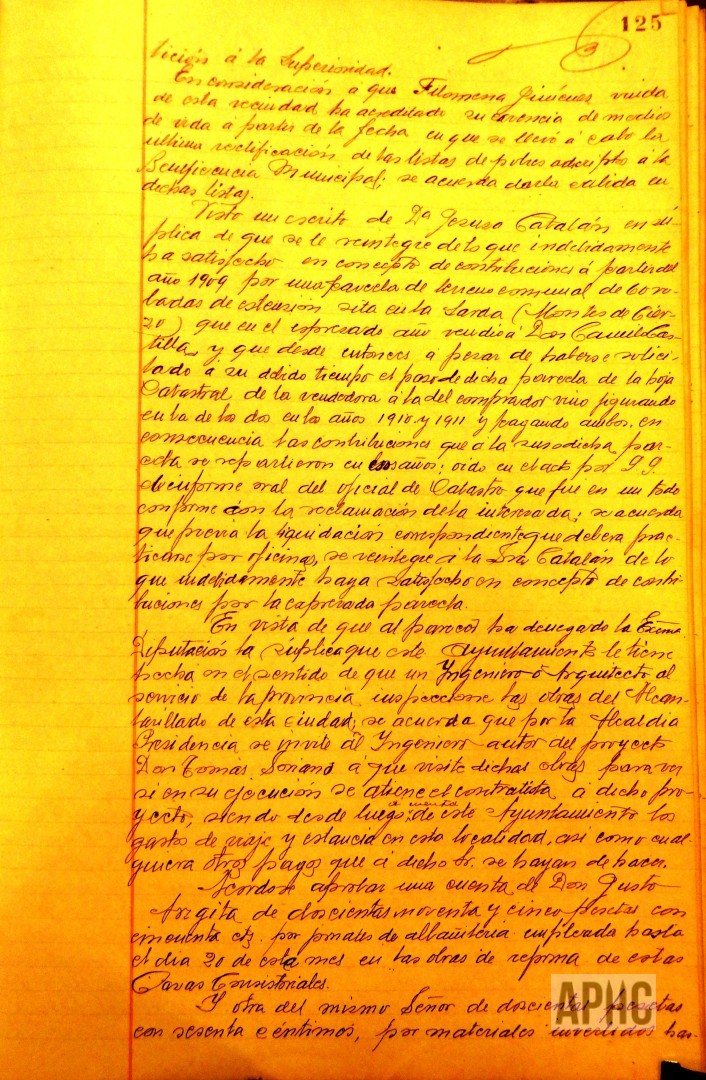 125
tición á la Superioridad.
En consideración á que Filomena Jiménez viuda
de esta vecindad ha acreditado su carencia de medios
de vida á partir de la fecha en que se llevó á cabo la
ultima rectificación de las listas de pobres adscriptos á la
Beneficencia Municipal, se acuerda darle cabida en
dichas listas.
Visto un escrito de Dª Jesusa Catalán en sú-
plica de que se le reintegre de lo que indebidamente
ha satisfecho en concepto de contribuciones á partir del
año 1909 por una parcela de terreno comunal de 60 ro-
badas de extensión sita en la Sarda (Montes de Cier-
zo) que en el expresado año vendió á Don Camilo Cas-
tilla, y que desde entonces á pesar de haberse solici-
tado a su debido tiempo el paso de dicha parcela de la hoja
Catastral de la vendedora á la del comprador vino figurando
en la de los dos en los años 1910 y 1911 y pagando ambos, en
consecuencia las contribuciones que á la susodicha par-
cela se repartieron en esos años; oido en el acto por S.S.
el informe oral del oficial de Catastro que fué en un todo
conforme con la reclamación de la interesada; se acuerda
que previa la liquidación correspondiente que deberá prac-
ticarse por oficinas, se reintegre á la Sra Catalán de lo
que indebidamente haya satisfecho en concepto de contri-
buciones por la expresada parcela.
En vista de que al parecer ha denegado la Excma
Diputación la súplica que este Ayuntamiento le tiene
hecha en el sentido de que un Ingeniero ó Arquitecto al
servicio de la provincia inspeccione las obras del Alcan-
tarillado de esta ciudad, se acuerda que por la Alcaldia
Presidencia se invite al Ingeniero autor del proyecto
Don Tomás Soriano a que visite dichas obras para ver
si en su ejecución se atiene el contratista á dicho pro-
yecto, siendo desde luego de cuenta de este Ayuntamiento los
gastos de viaje y estancia en esta localidad, asi como cual-
quiera otros pagos que á dicho Sr. se hayan de hacer.
Acordose aprobar una cuenta de Don Justo
Argita de doscientas noventa y cinco pesetas con
cincuenta cts. por jornales de albañilería empleada hasta
el dia 20 de este mes en las obras de reforma de estas
Casas Consistoriales.
Y otra del mismo Señor de doscientas pesetas
con sesenta céntimos, por materiales invertidos has-
APHC